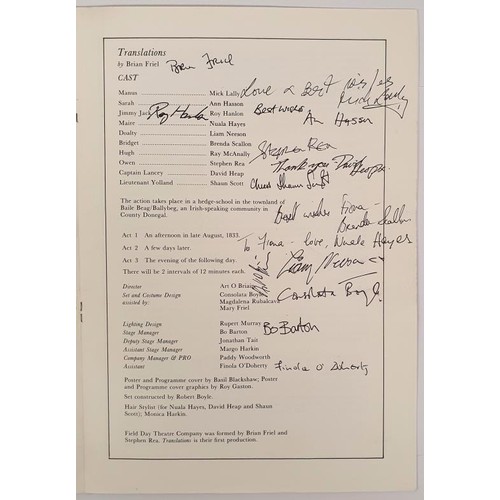 Translations
by Brian Friel Brian Friel
CAST
Manus Mick Lally Love & Best wishes Mick Lally
Sarah Ann Hasson Best wishes
Jimmy Jack Roy Hanlon Roy Hanlon Ann Hasson
Maire Nuala Hayes
Doalty Liam Neeson
Bridget Brenda Scallon Stephen Rea
Hugh Ray McAnally Thank you David Heap
Owen Stephen Rea
Captain Lancey David Heap Cheers Shaun Scott
Lieutenant Yolland Shaun Scott
The action takes place in a hedge-school in the townland of
Baile Beag/Ballybeg, an Irish-speaking community in
County Donegal.
Best wishes Fiona -
Brenda Scallon
Act 1 An afternoon in late August, 1833.
To Fiona - love, Nuala Hayes
Act 2 A few days later.
Act 3 The evening of the following day.
Liam Neeson
There will be 2 intervals of 12 minutes each.
Director Art O Briain
Set and Costume Design Consolata Boyle Consolata Boyle
assisted by: Magdalena Rubalcava
Mary Friel
Lighting Design Rupert Murray
Stage Manager Bo Barton Bo Barton
Deputy Stage Manager Jonathan Tait
Assistant Stage Manager Margo Harkin
Company Manager & PRO Paddy Woodworth
Assistant Finola O'Doherty Finola O'Doherty
Poster and Programme cover by Basil Blackshaw; Poster
and Programme cover graphics by Roy Gaston.
Set constructed by Robert Boyle.
Hair Stylist (for Nuala Hayes, David Heap and Shaun
Scott); Monica Harkin.
Field Day Theatre Company was formed by Brian Friel and
Stephen Rea. Translations is their first production.